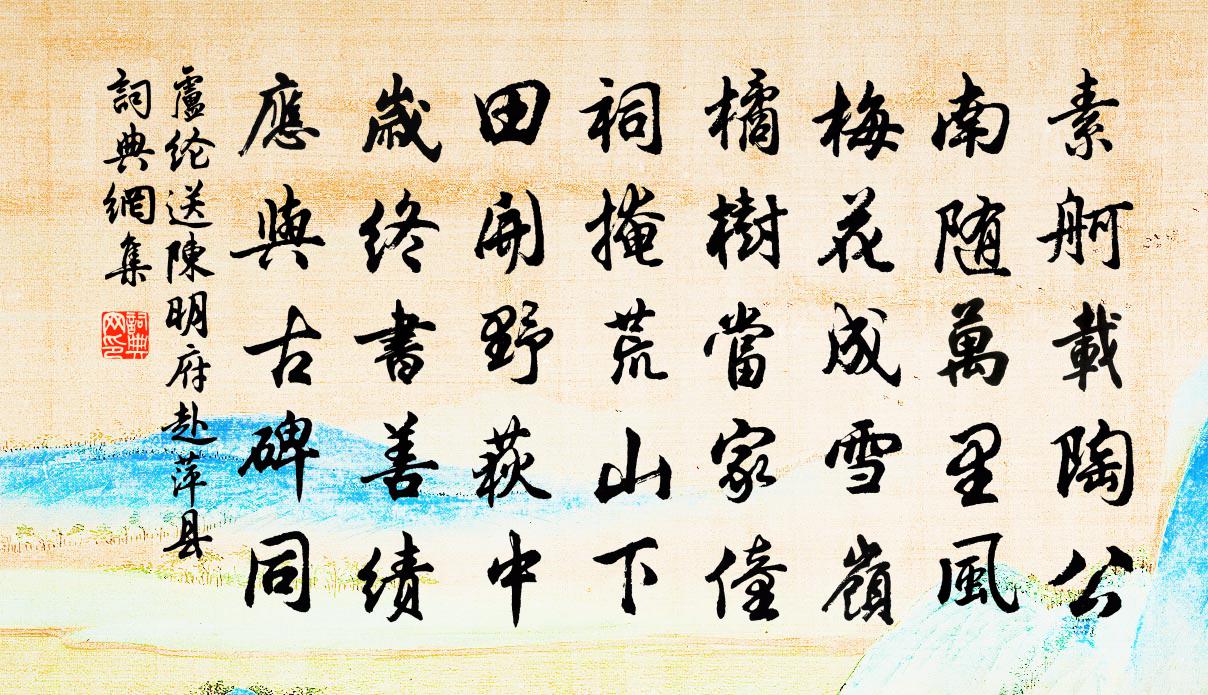 素舸載陶公
南随萬里風
梅花成雪嶺
橘樹當家僮
祠掩荒山下
田開野荻中
歲終書善績
應與古碑同
盧纶送陳明府赴萍县
詞典網集
詞典
网印